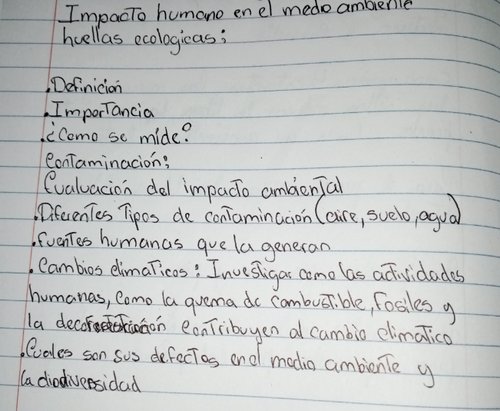 Impacto humano en el medio ambiente
huellas ecologicas:
.Definición
.Importancia
.¿Como se mide?
Contaminación:
Evaluación del impacto ambiental
.Diferentes Tipos de contaminación (aire, suelo, agua)
.fuentes humanas que la generan
.Cambios climaticos: Investigar como las actividades
humanas, como la quema de combustible, fosiles y
la deforestación contribuyen al cambio climatico
.Cuales son sus defectos en el medio ambiente y
la diodiversidad